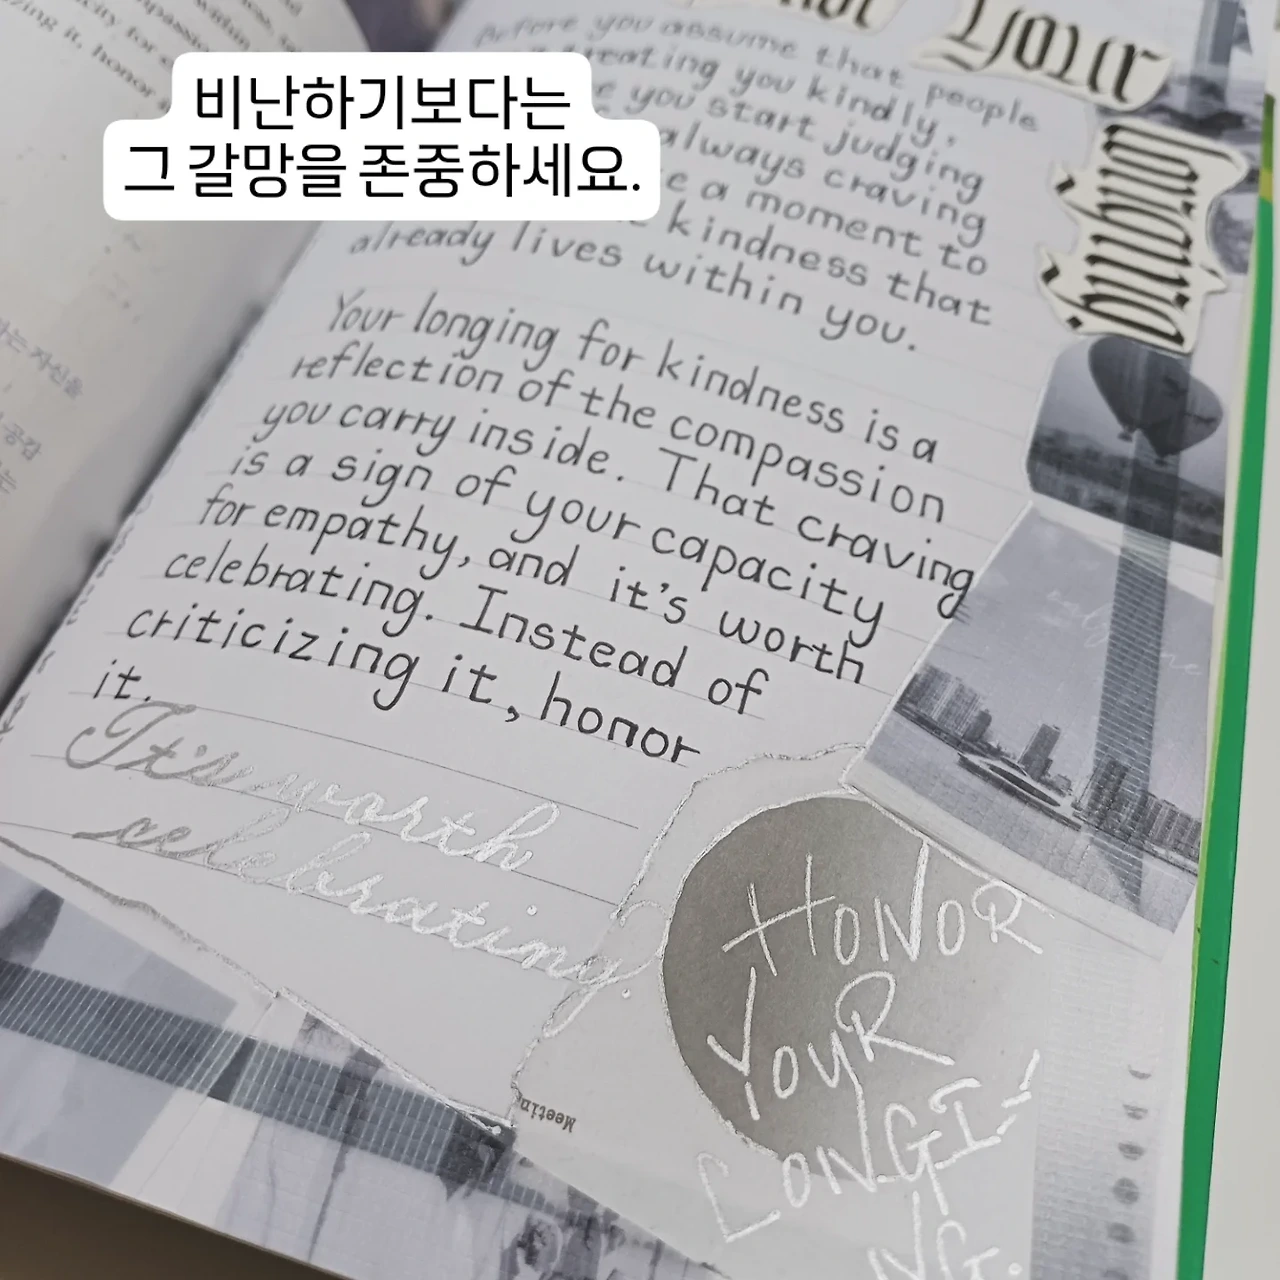 비난하기보다는
그 갈망을 존중하세요.
Your
Longing
Before you assume that people
treating you kindly,
you start judging
always craving
a moment to
kindness that
already lives within you.
Your longing for kindness is a
reflection of the compassion
you carry inside. That craving
is a sign of your capacity
for empathy, and it's worth
celebrating. Instead of
criticizing it, honor
it.
It's worth
celebrating.
HONOR
YOUR
LONGI-
NG.
Meetin
zing it, honor
는 자신을
공감
는